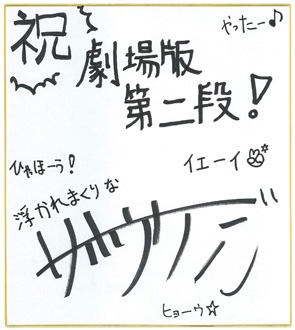 祝
やったー♪
劇場版
第二段!
ひゃほーう!
イエーイ
浮かれまくりな
ヒョーウ☆